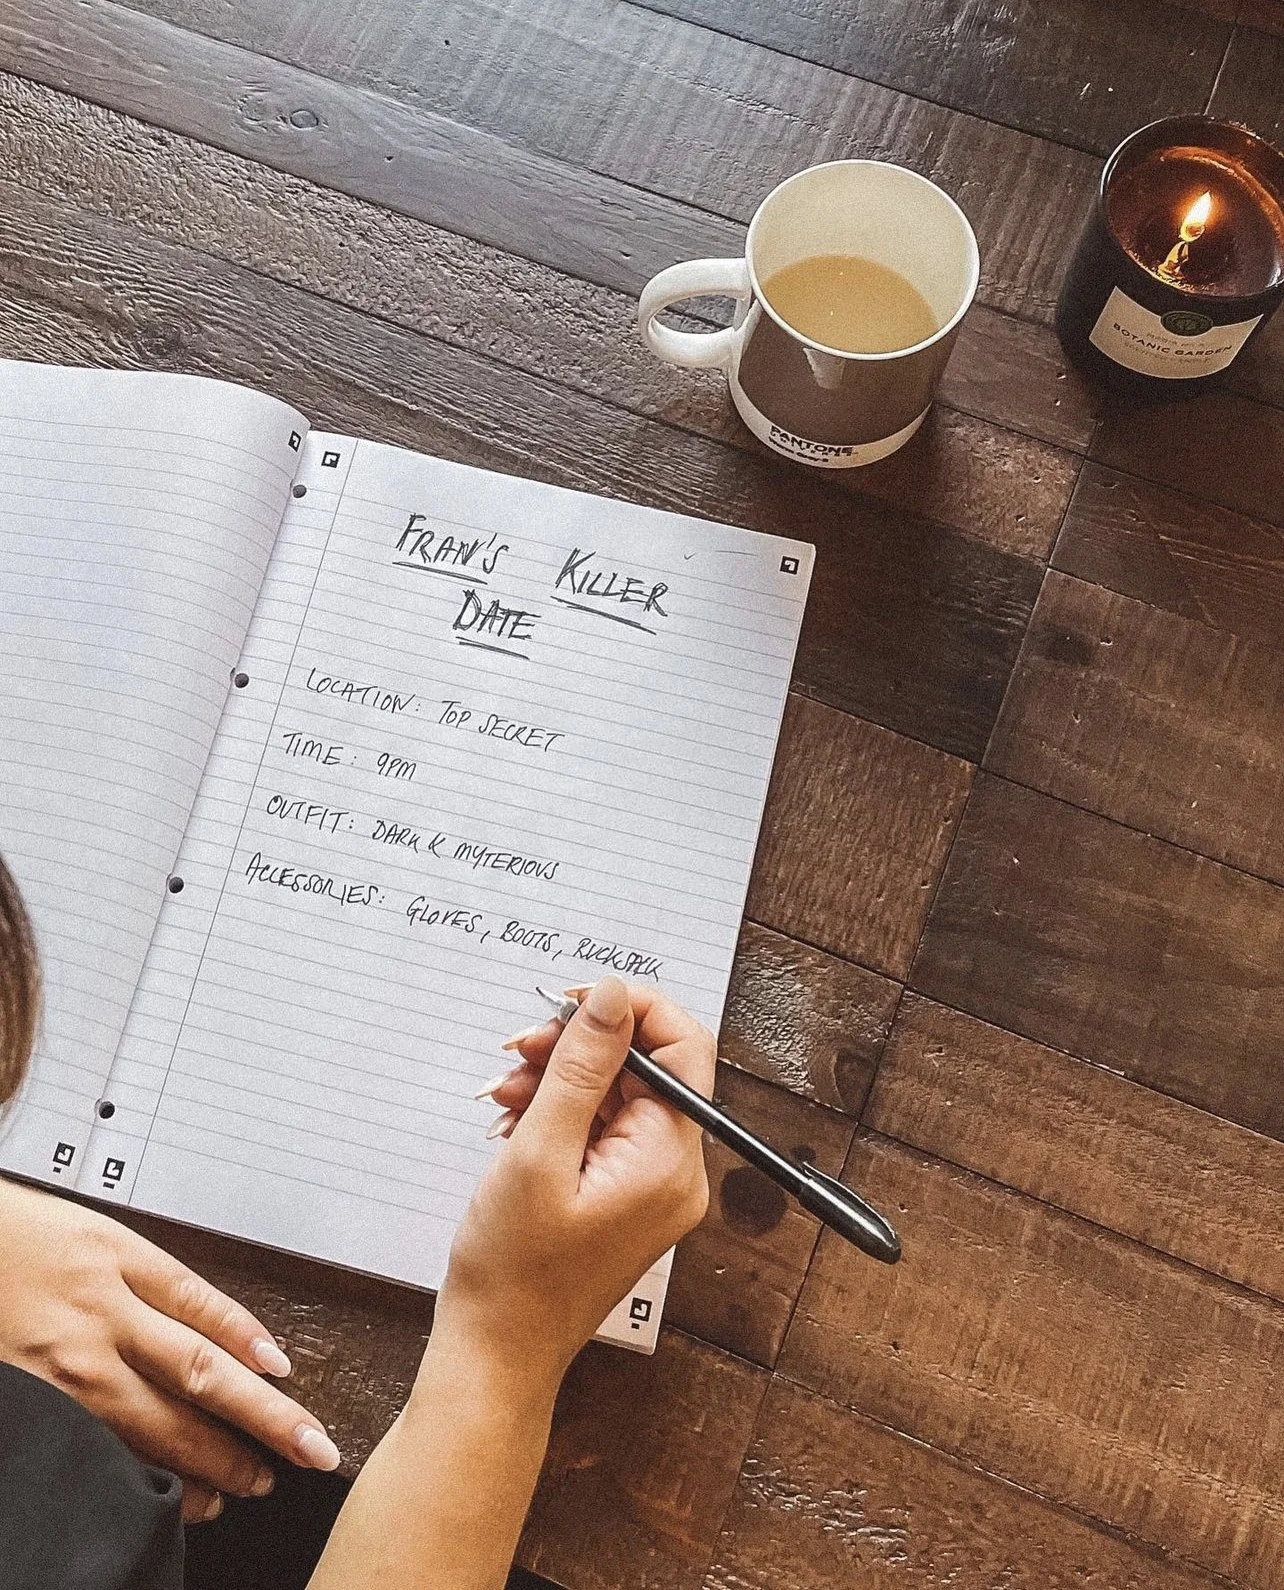 FRAN'S KILLER
DATE
LOCATION: TOP SECRET
TIME: 9PM
OUTFIT: DARK & MYTERIOUS
ACCESSORIES: GLOVES, BOOTS, RUCKSACK
PANTONE
BOTANIC GARDEN